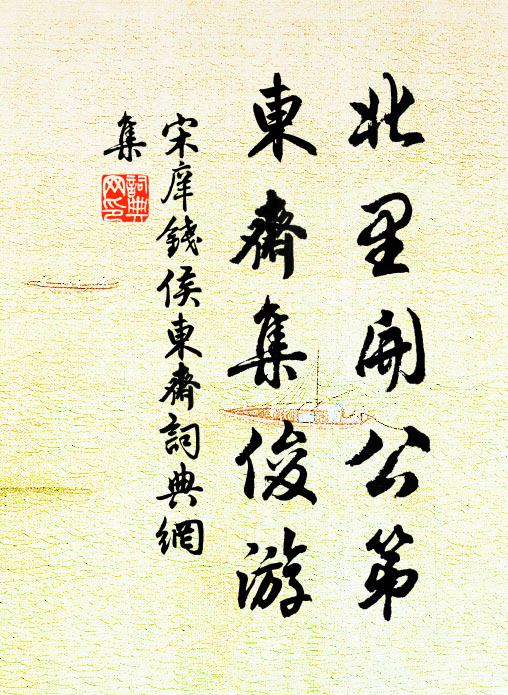 北里開公第
東齋集俊游
宋庠錢侯東齋詞典網
集
詞典
网印